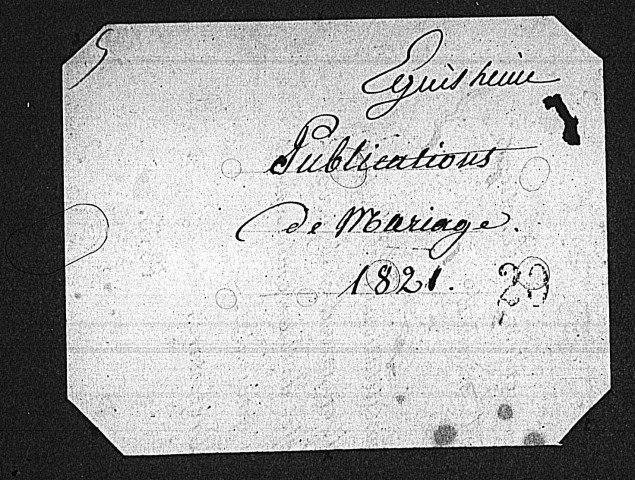 Eguisheim
Publications
de Mariage.
1821. 29